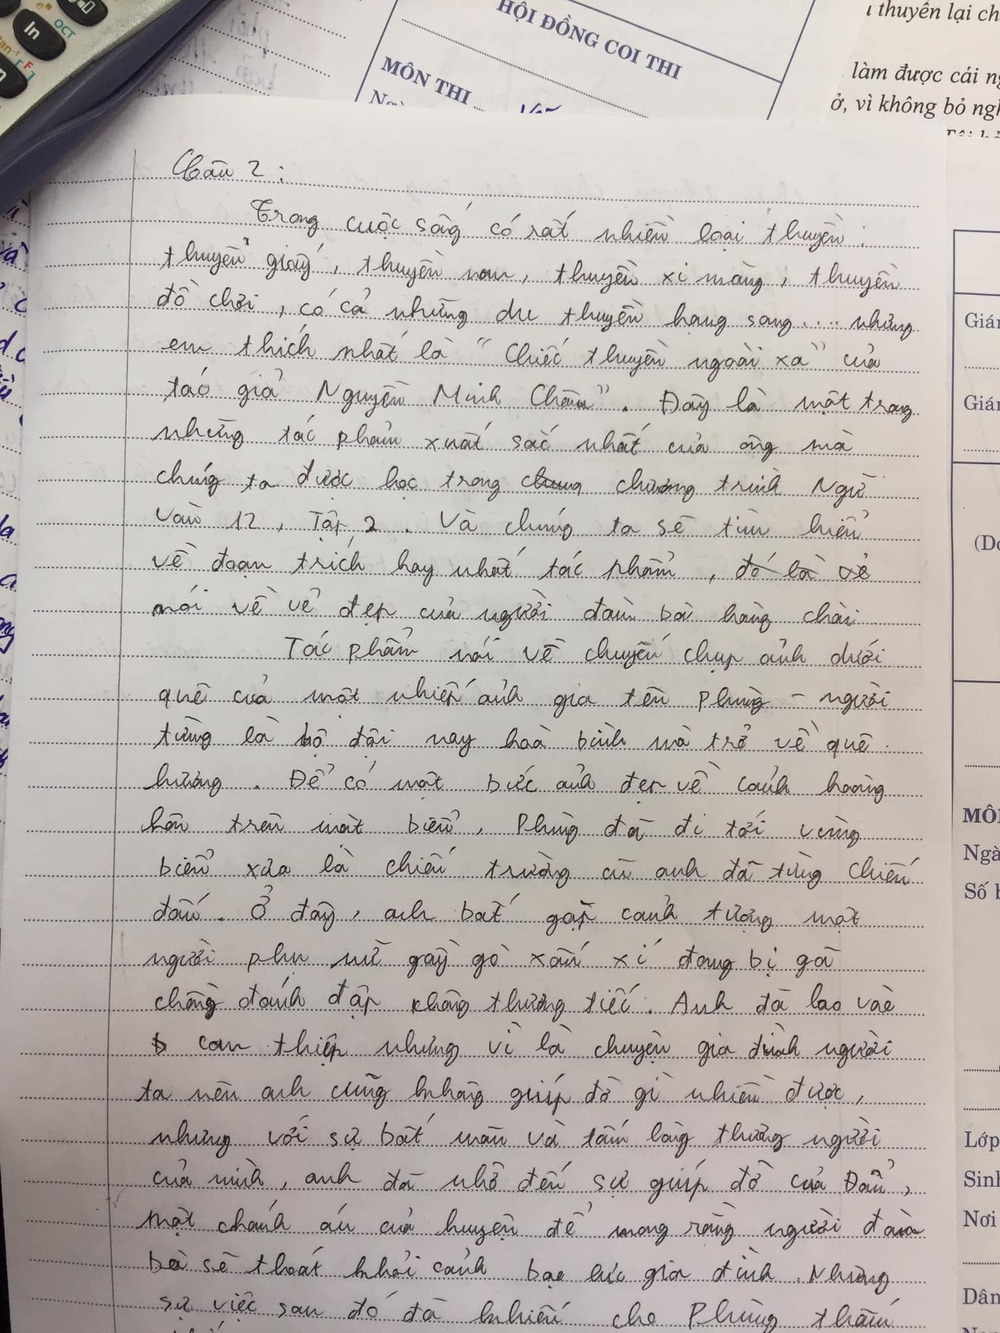 In
OCT
HỘI ĐỒNG COI THI
MÔN THI
thuyên lại ch
làm được cái ng
ở, vì không bỏ ngh
Câu 2 :
Trong cuộc sống có rất nhiều loại thuyền :
thuyền giấy, thuyền nan, thuyền xi măng, thuyền
đồ chơi, có cả những du thuyền hạng sang.... nhưng
em thích nhất là "Chiếc thuyền ngoài xa" của
tác giả Nguyễn Minh Châu". Đây là một trong
những tác phẩm xuất sắc nhất của ông mà
chúng ta được học trong chương trình Ngữ
văn 12, Tập 2. Và chúng ta sẽ tìm hiểu
về đoạn trích hay nhất tác phẩm, đó là về
nói về vẻ đẹp của người đàn bà hàng chài
Tác phẩm nói về chuyến chụp ảnh dưới
quê của một nhiếp ảnh gia tên Phùng - người
từng là bộ đội nay hoà bình mà trở về quê
hương. Để có một bức ảnh đẹp về cảnh hoàng
hôn trên mặt biển, Phùng đã đi tới vùng
biển xưa là chiến trường cũ anh đã từng chiến
đấu. Ở đây, anh bắt gặp cảnh tượng một
người phụ nữ gầy gò xấu xí đang bị gã
chồng đánh đập không thương tiếc. Anh đã lao vào
can thiệp nhưng vì là chuyện gia đình người
ta nên anh cũng không giúp đỡ gì nhiều được,
nhưng với sự bất mãn và tấm lòng thương người
của mình, anh đã nhờ đến sự giúp đỡ của Đẩu,
một chánh án của huyện để mong rằng người đàn
bà sẽ thoát khỏi cảnh bạo lực gia đình. Nhưng
sự việc sau đó đã khiến cho Phùng thấm
Giám
Giám
MÔN
Ngà
Số b
Lớp
Sinh
Nơi
Dân